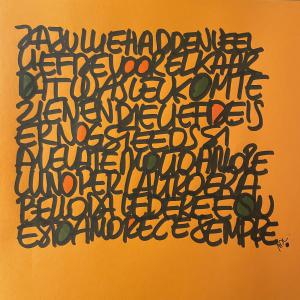 JA JULLIE HADDEN VEEL
LIEFDE VOOR ELKAAR
DAT WAS LEUK OM TE
ZIEN EN DIE LIEFDE IS
ER NOG STEEDS SI
AVEVATE MOLTO AMORE
L UNO PER L ALTRO ERA
BELLO DA VEDERE E QU
ESTO AMORE C E SEMPRE